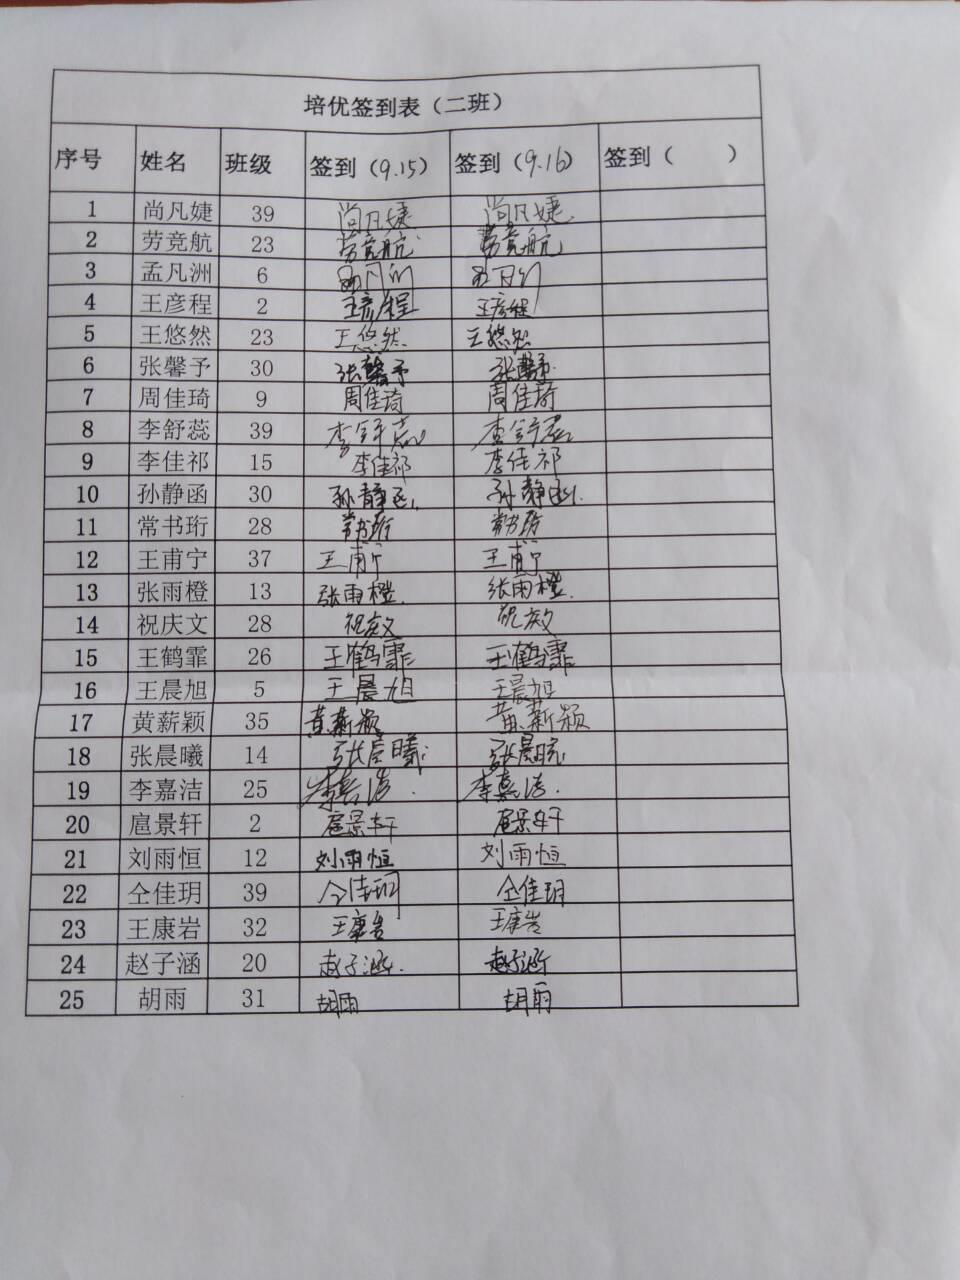 培优签到表（二班）
序号 姓名 班级 签到（9.15） 签到（9.16） 签到（ ）
1 尚凡婕 39 尚凡婕 尚凡婕
2 劳竞航 23 劳竞航 劳竞航
3 孟凡洲 6
4 王彦程 2 王彦程 王彦程
5 王悠然 23 王悠然 王悠然
6 张馨予 30 张馨予 张馨予
7 周佳琦 9 周佳琦 周佳琦
8 李舒蕊 39 李舒蕊 李舒蕊
9 李佳祁 15 李佳祁 李佳祁
10 孙静函 30 孙静函 孙静函
11 常书珩 28 常书珩 常书珩
12 王甫宁 37 王甫宁 王甫宁
13 张雨橙 13 张雨橙. 张雨橙.
14 祝庆文 28 祝庆文 祝庆文
15 王鹤霏 26 王鹤霏 王鹤霏
16 王晨旭 5 王晨旭 王晨旭
17 黄薪颖 35 黄薪颖 黄薪颖
18 张晨曦 14 张晨曦 张晨曦
19 李嘉洁 25 李嘉洁. 李嘉洁.
20 扈景轩 2 扈景轩 扈景轩
21 刘雨恒 12 刘雨恒 刘雨恒
22 仝佳玥 39 仝佳玥 仝佳玥
23 王康岩 32 王康岩 王康岩
24 赵子涵 20 赵子涵. 赵子涵
25 胡雨 31 胡雨 胡雨